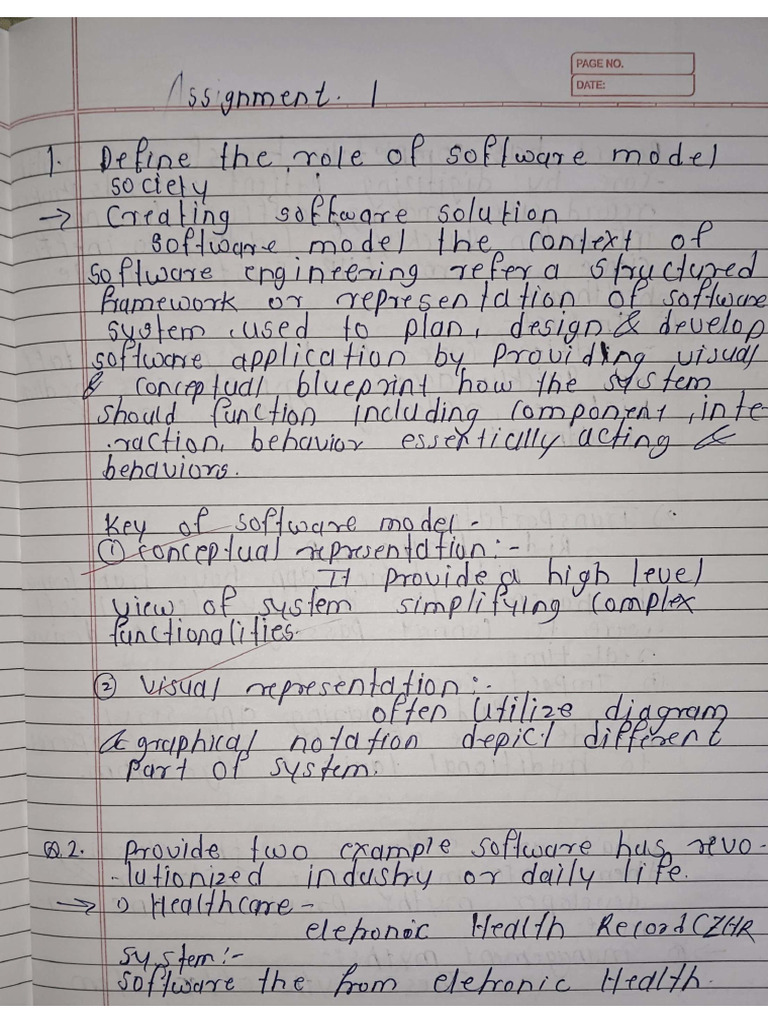 PAGE NO.
DATE:
Assignment. 1
1. Define the role of software model
society
→ Creating software solution
software model the context of
software engineering refer a structured
framework or representation of software
system used to plan, design & develop
software application by providing visual
& conceptual blueprint how the system
should function including component, inte
raction, behavior essentially acting &
behaviors.
Key of software model -
① conceptual representation :-
It provide a high level
view of system simplifying complex
functionalities.
② visual representation :-
often utilize diagram
& graphical notation depict different
part of system.
Q.2. Provide two example software has revo-
-lutionized industry or daily life.
→ 1) Healthcare -
eletronic Health Record CZHR
system :-
software the from eletronic Health.